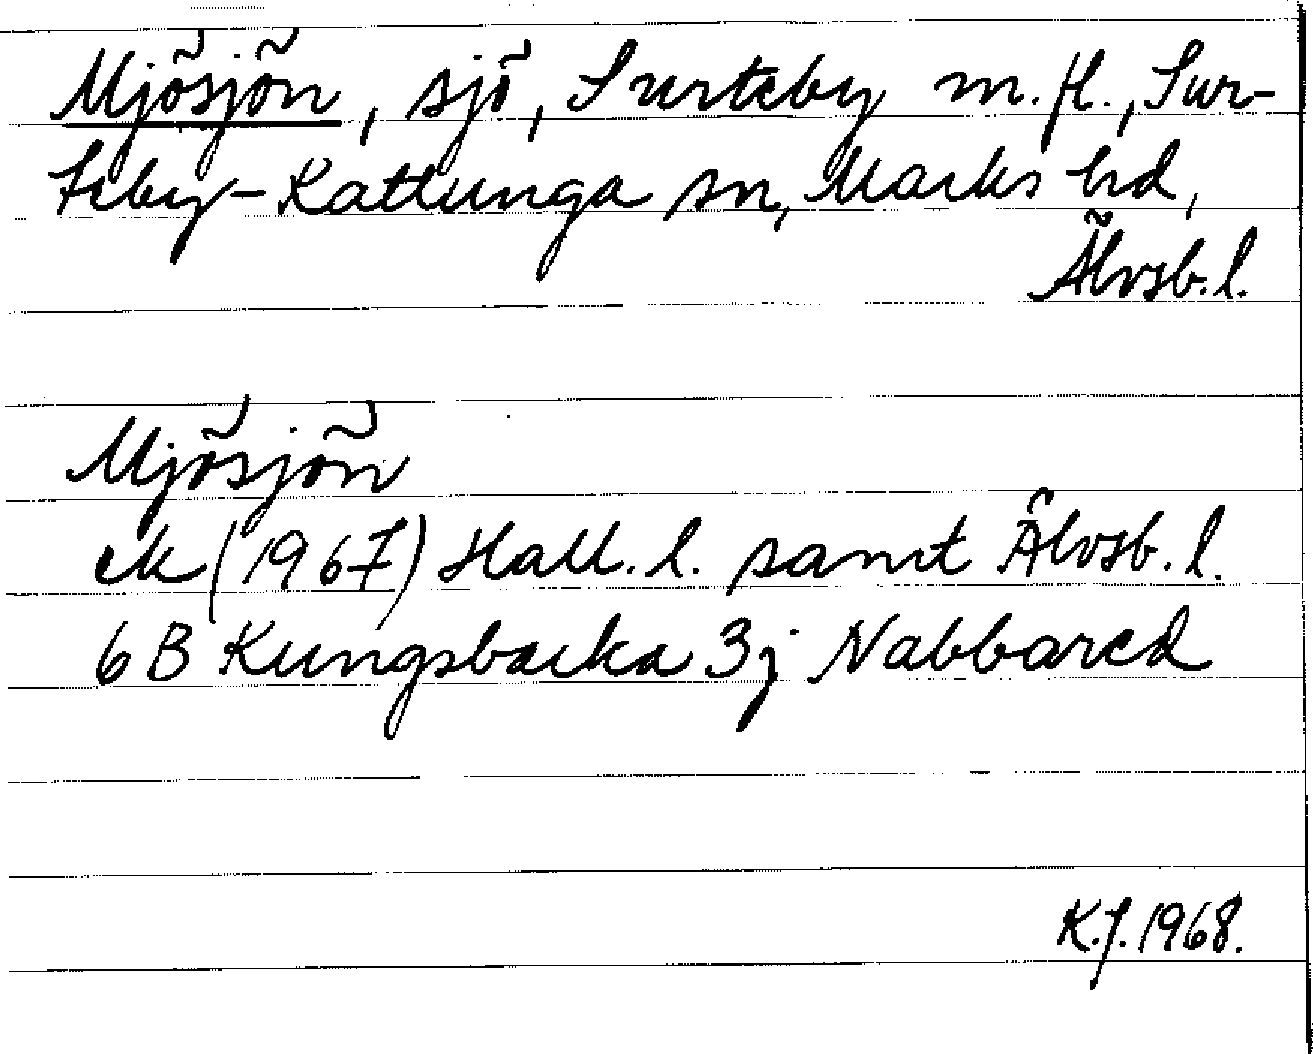 Mjösjön, sjö, Surteby m.fl., Sur-
teby-Kattunga sn, Marks hd,
Älvsb.l.
Mjösjön
ek (1967) Hall.l. samt Älvsb.l.
6B Kungsbacka 3j Nabbared
K.J. 1968.